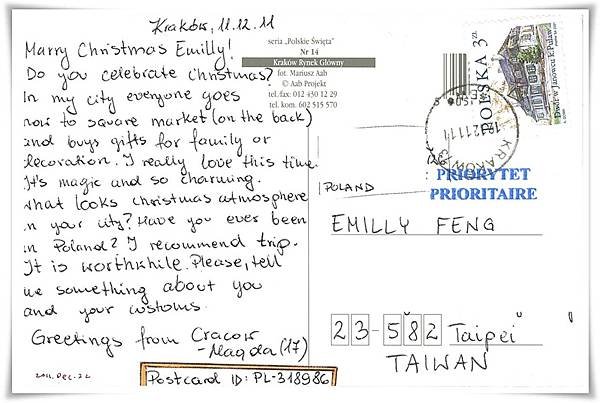 Kraków, 11.12.11
Marry Christmas Emilly!
Do you celebrate Christmas?
In my city everyone goes
now to square market (on the back)
and buys gifts for family or
decoration. I really love this time.
It's magic and so charming.
What looks christmas atmosphere
in your city? Have you ever been
in Poland? I recommend trip.
It is worthkhile. Please, tell
me something about you
and your customs.
Greetings from Cracow
-Magda (17)
2011. Dec. 22
Postcard ID: PL-318986
seria „Polskie Święta"
Nr 14
Kraków Rynek Główny
fot. Mariusz Aab
© Aab Projekt
tel./fax: 012 430 12 29
tel. kom. 602 515 570
POLSKA 3 ZŁ
KRAKÓW
PRIORYTET
PRIORITAIRE
POLAND
EMILLY FENG
23-582 Taipei
TAIWAN